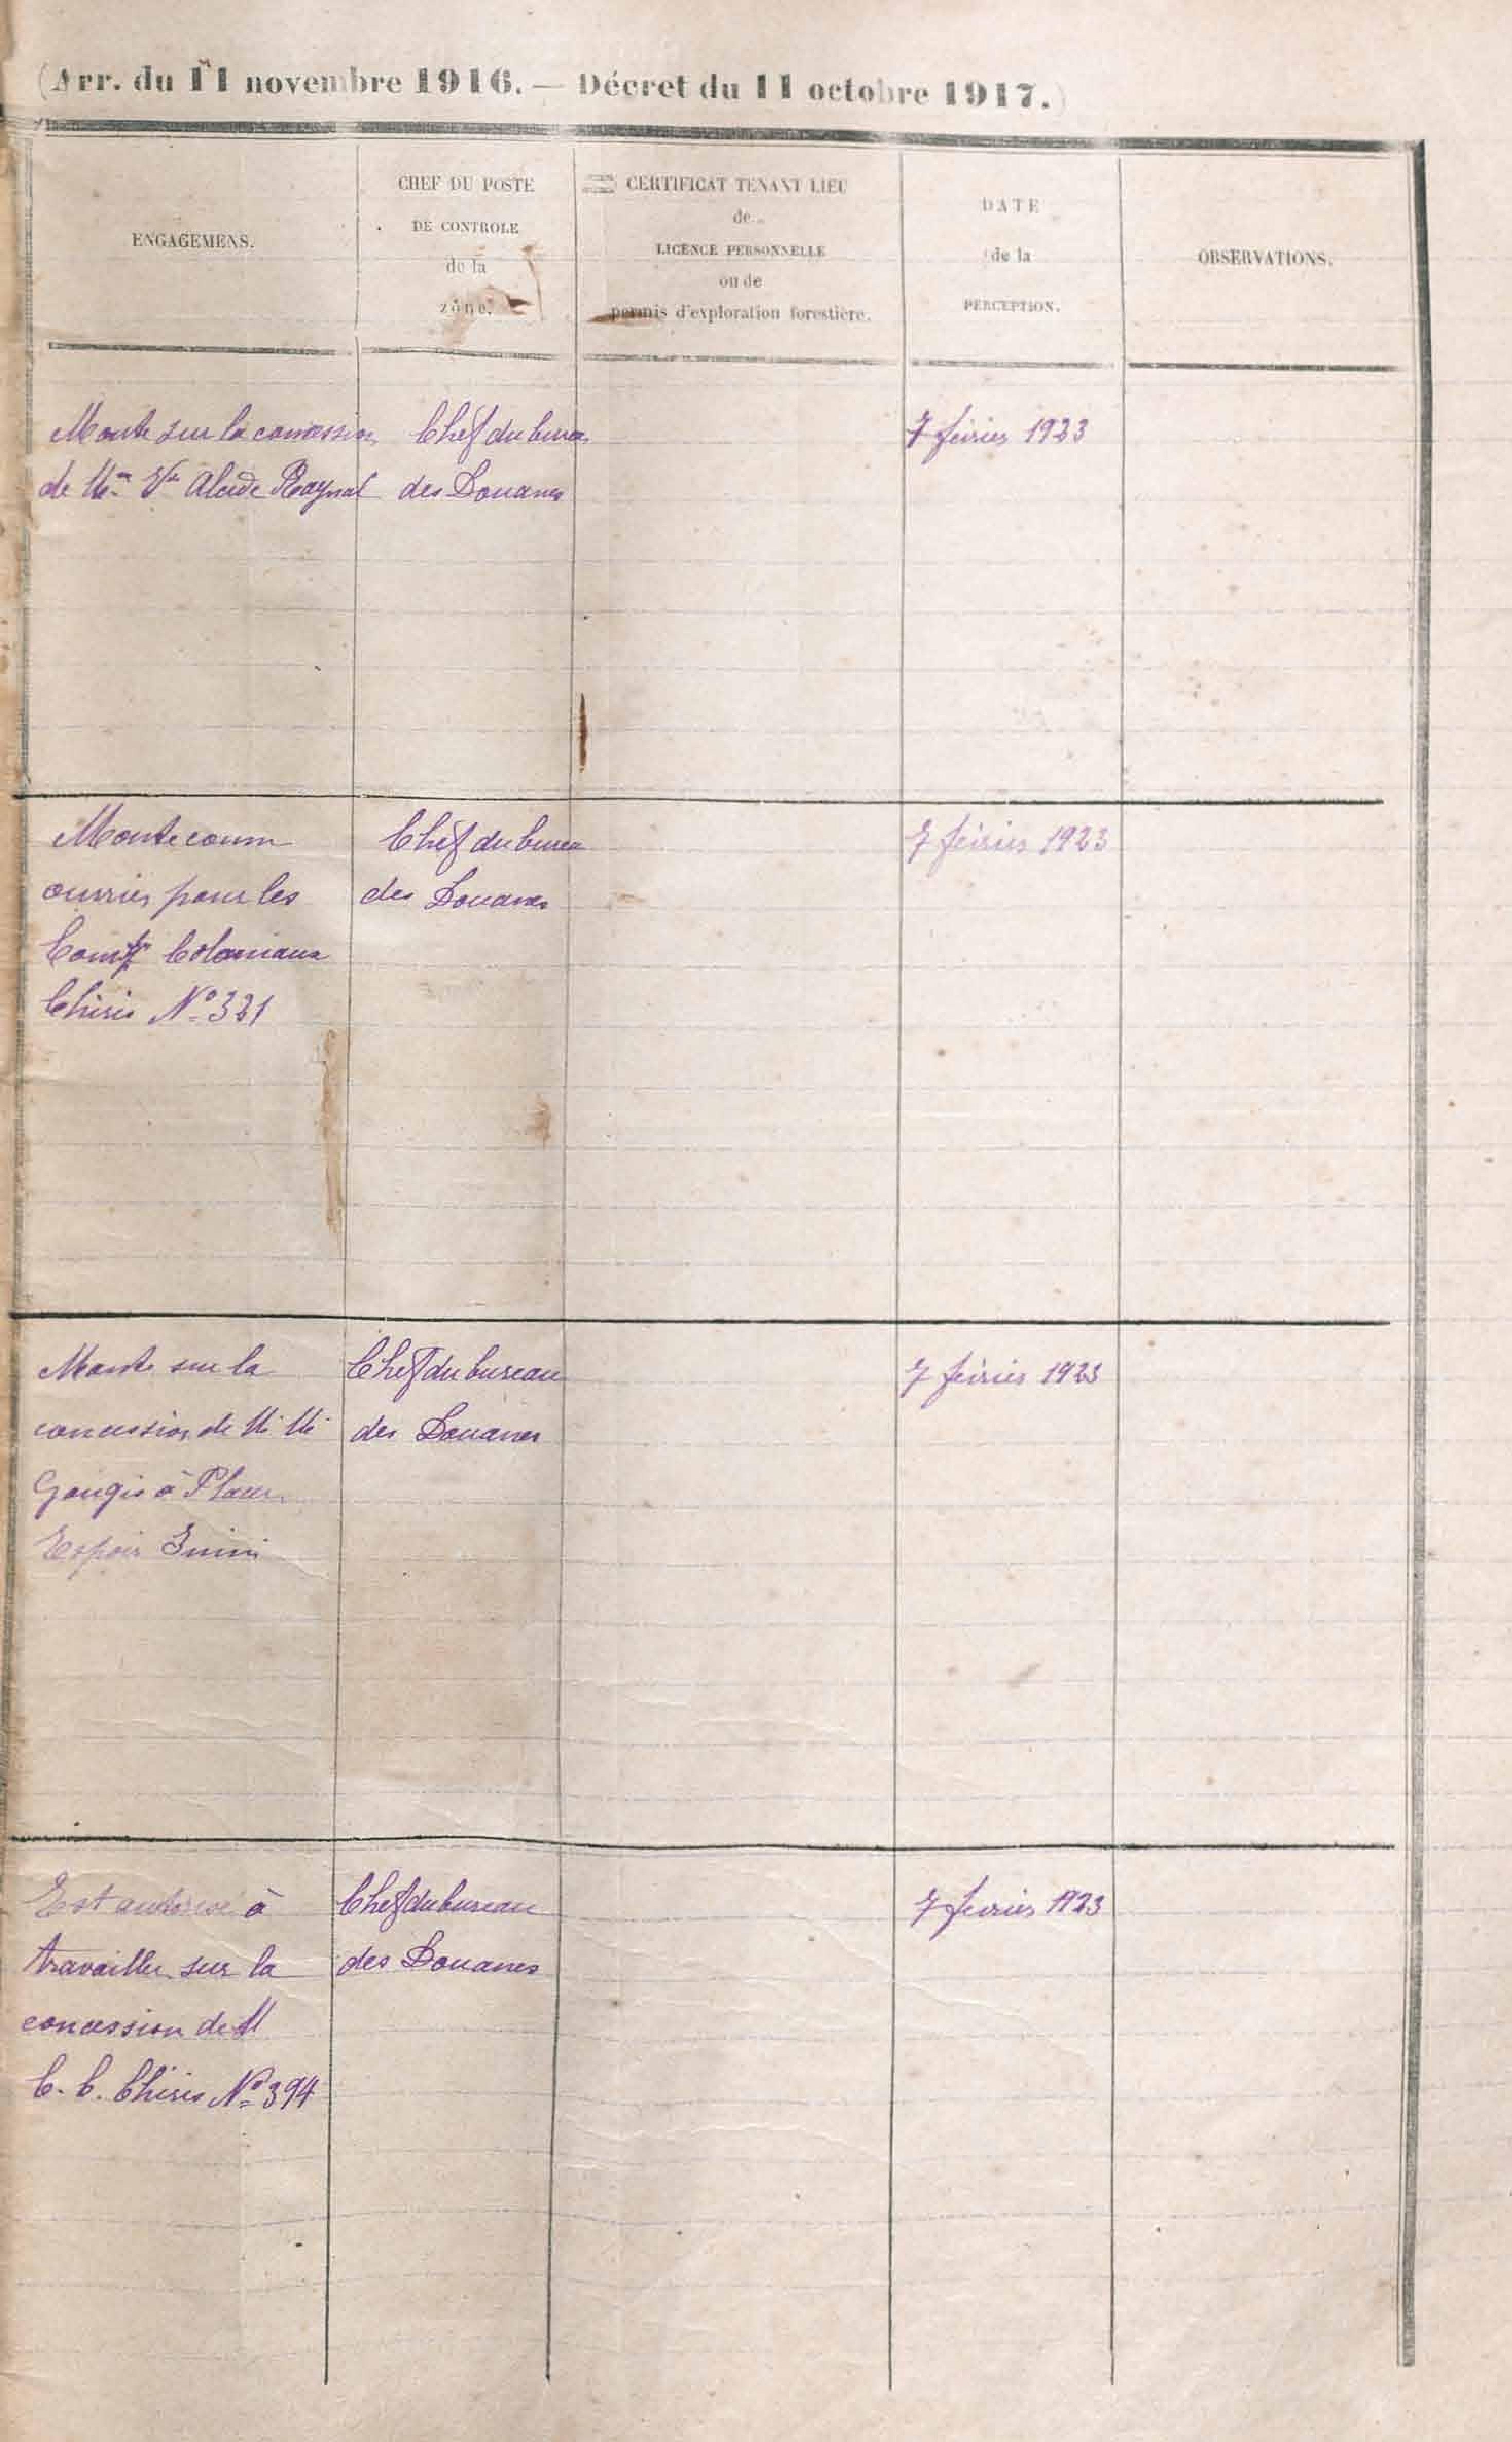 (Arr. du 11 novembre 1916. — Décret du 11 octobre 1917.)
ENGAGEMENS.
CHEF DU POSTE
DE CONTROLE
de la
zône.
CERTIFICAT TENANT LIEU
de
LICENCE PERSONNELLE
ou de
permis d'exploration forestière.
DATE
de la
PERCEPTION.
OBSERVATIONS.
Monte sur la concession
de Mme Vve Alcide Raynal
Chef du bureau
des Douanes
7 février 1923
Monte comm
ouvrier pour les
Compt Coloniaux
Chiris No 321
Chef du bureau
des Douanes
7 février 1923
Monte sur la
concession de M. M.
Gougis à Placer
Espoir Inini
Chef du bureau
des Douanes
7 février 1923
Est autorisé à
travailler sur la
concession de M
C. C. Chiris No 394
Chef du bureau
des Douanes
7 février 1923